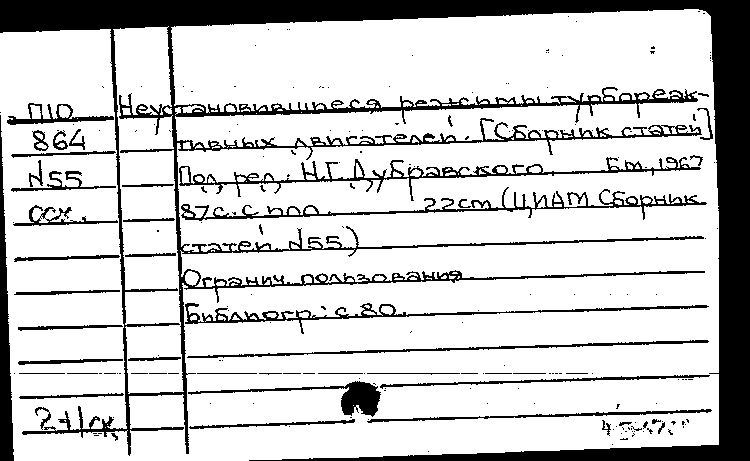 П10 Неустановившиеся режимы турбореак-
864 тивных двигателей. [Сборник статей]
N55 Под ред. Н.Г. Дубравского. Б.м., 1967
осх. 87с. с илл. 22см (ЦИАМ. Сборник
статей N55)
Огранич. пользования
Библиогр.: с. 80.